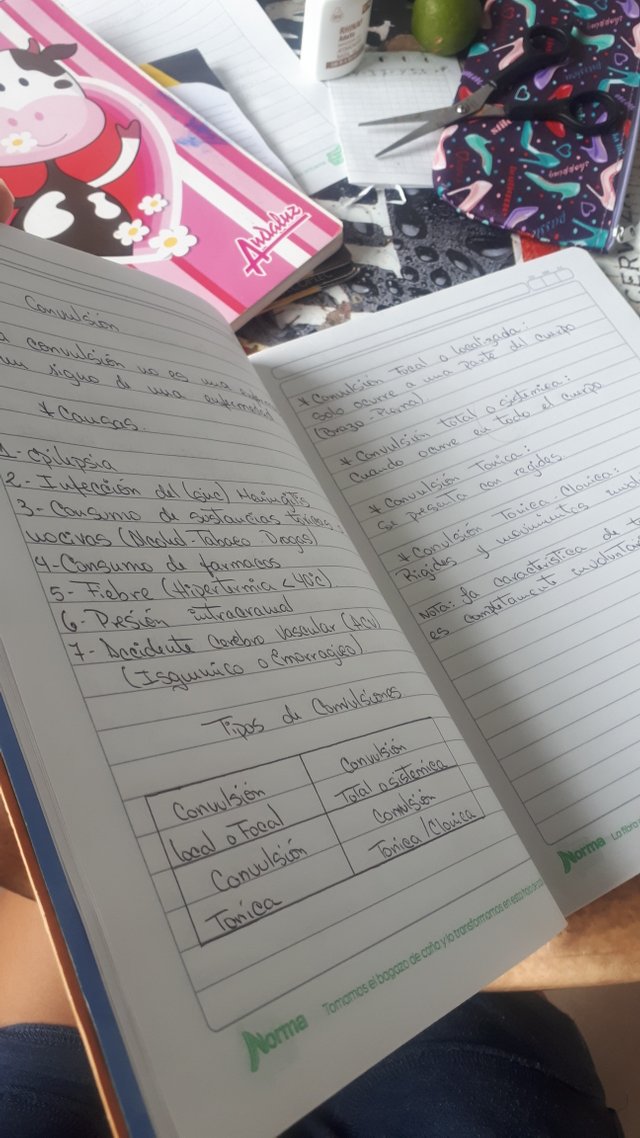 Convulsión
convulsión no es una
un signo de una enfermedad
* Causas.
1.- Epilepsia
2.- Infección del (SNC) Meningitis
3.- Consumo de sustancias tóxicas
nocivas (Alcohol-Tabaco-Drogas)
4- Consumo de farmacos
5- Fiebre (Hipertermia < 40°c)
6- Presión intracranial
7- Accidente Cerebro Vascular (ACV)
(Isquimico o Emorragico)
Tipos de Convulsiones
Convulsión
Local o Focal
Convulsión
Total o sistemica
Convulsión
Tonica
Convulsión
Tonica/Clonica
Norma
Tomamos el bagazo de caña y lo transformamos en esta hoja de
* Convulsión Focal o localizada:
solo ocurre a una parte del cuerpo
(Brazo-Pierna)
* Convulsión total o sistemica:
Cuando ocurre en todo el cuerpo
* Convulsión Tonica:
Se presenta con regides.
* Convulsión Tonica-Clonica:
Rigides y movimientos
Nota: la caracteristica de
es completamente involuntari
Norma
Andaluz